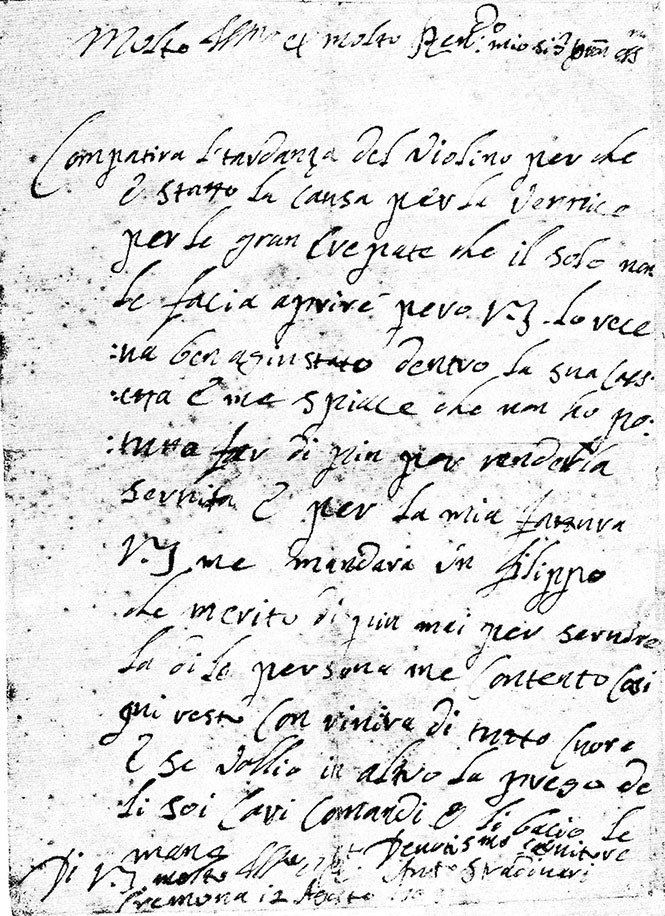 Molto Ill.mo et molto Rev.do mio sig.r
Compatira l'tardanza del Violino per che
è statto la causa per la Vernice
per le gran Crepate che il sole non
le facia aprire pero V.S. lo rece
:ua ben agiustato dentro la sua Cas:
:etta è me spiace che non ho po:
:tutto far di piu per renderla
seruita è per la mia fattura
V.S. me mandara un filippo
che merito di piu mai per seruire
la di le persona me Contento Cosi
qui resto Con di tutto Cuore
è se vallio in altro la prego de
li soi Cari Comandi è li bacio le
mane
Di V.S. molto Ill.re Deuotis.mo seruitore
Cremona 12 Agosto Ant.o Stradiuari